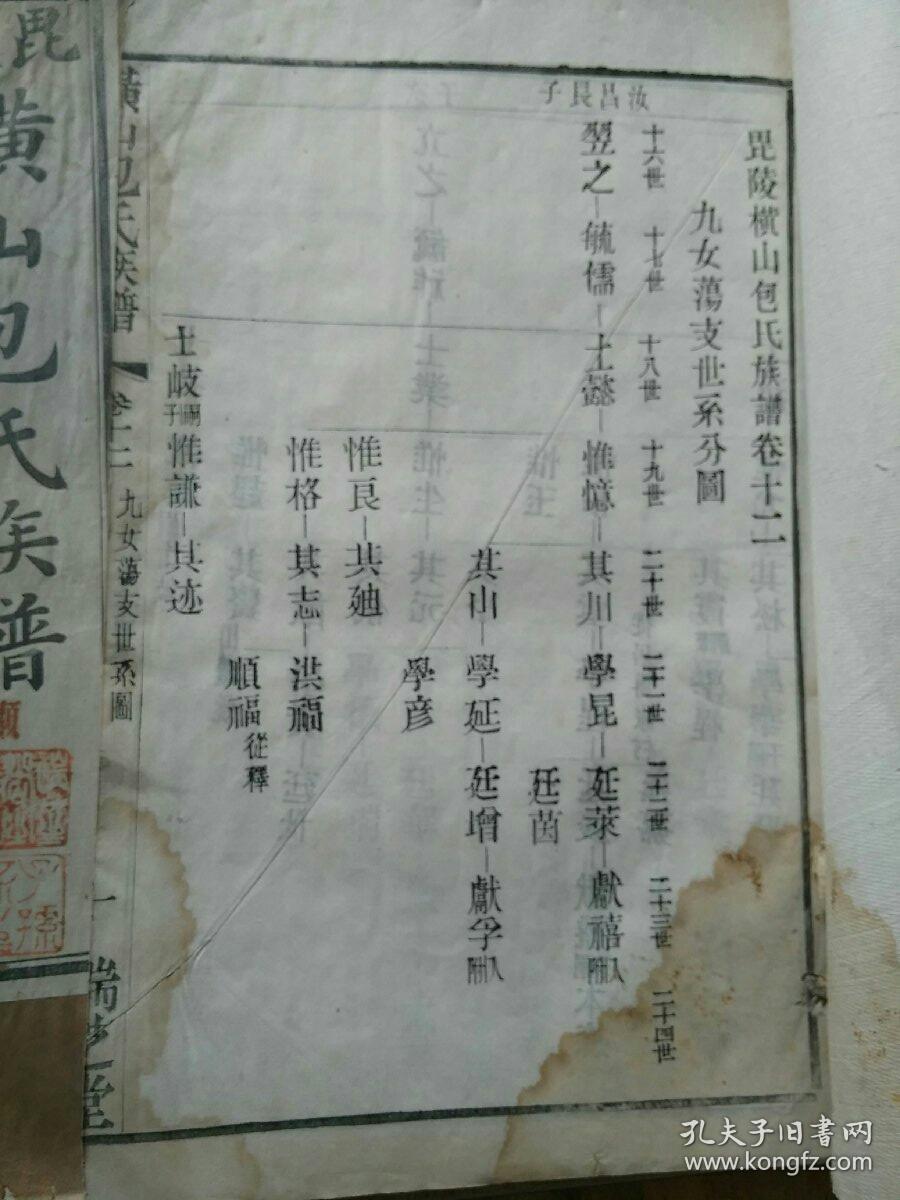 毘陵橫山包氏族譜卷十二
九女蕩支世系分圖
十六世 十七世 十八世 十九世 二十世 二十一世 二十二世 二十三世 二十四世
汝昌長子
翌之 毓儒 士懿 惟憶 其川 學昆 廷萊 獻禧 入繼
廷茵
其山 學延 廷增 獻孚 入繼
學彥
惟良 其廸
惟格 其志 洪福
順福 從釋
士岐 嗣子 惟謙 其迹
橫山包氏族譜 卷十二 九女蕩支世系圖 一
橫山包氏族譜
孔夫子旧书网
www.kongfz.com